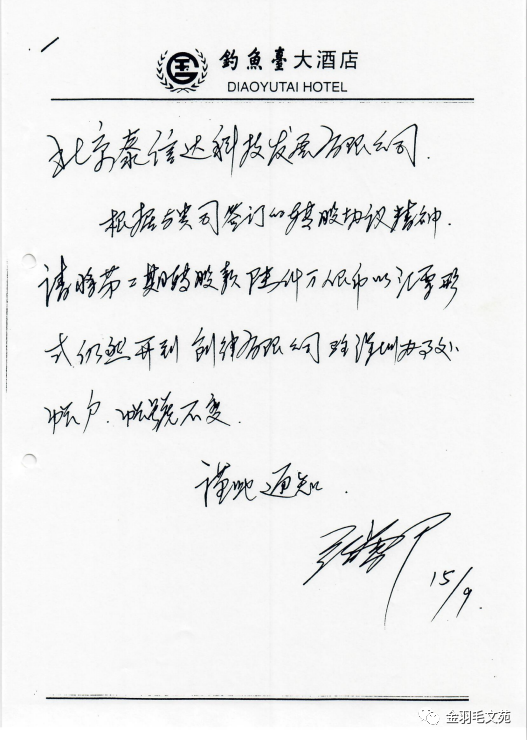 釣魚臺大酒店
DIAOYUTAI HOTEL
北京泰信达科技发展有限公司.
根据与贵司签订的转股协议精神.
请将第二期转股款陆仟万人民币以汇票形
式仍然开到创律有限公司驻深圳办事处
帐户.帐號不变.
谨此通知.
15/9.
金羽毛文苑